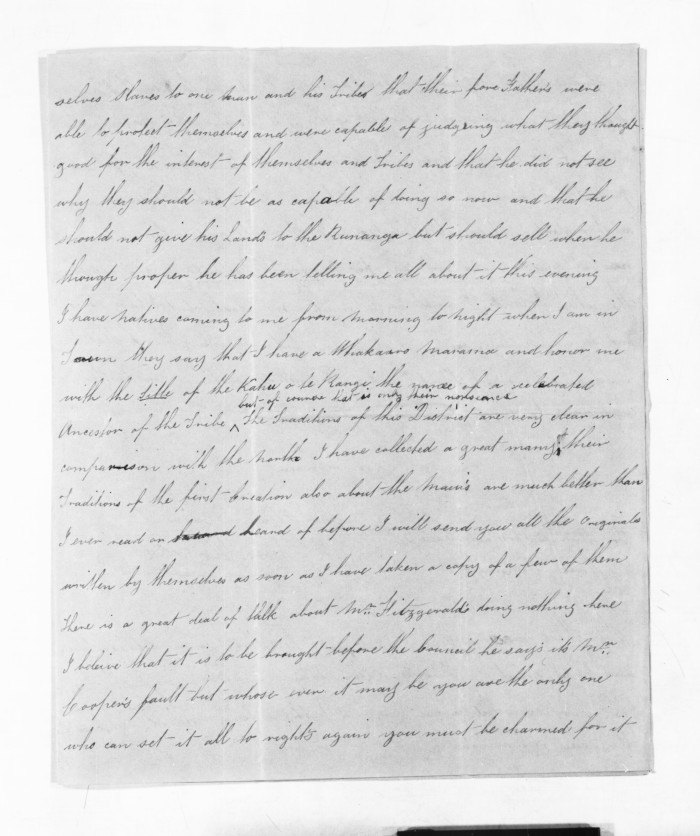 selves slaves to one man and his Tribes that their fore Father's were
able to protect themselves and were capable of judgeing what they thought
good for the interest of themselves and Tribes and that he did not see
why they should not be as capable of doing so now and that he
should not give his Lands to the Runanga but should sell when he
though proper he has been telling me all about it this evening
I have natives coming to me from morning to night when I am in
Town they say that I have a Whakaaro marama and honor me
with the title of the Kahu o te Rangi the name of a celebrated
but of course that is only their nonsense
Ancestor of the Tribe ^ The Traditions of this District are very clear in
comparison with the north I have collected a great many their
Traditions of the first Creation also about the Maui's are much better than
I ever read or heard of before I will send you all the Originals
written by themselves as soon as I have taken a copy of a few of them
There is a great deal of talk about Mr. Fitzgerald's doing nothing here
I beleive that it is to be brought before the Council he say's it's Mr.
Cooper's fault but whose ever it may be you are the only one
who can set it all to right's again you must be charmed for it